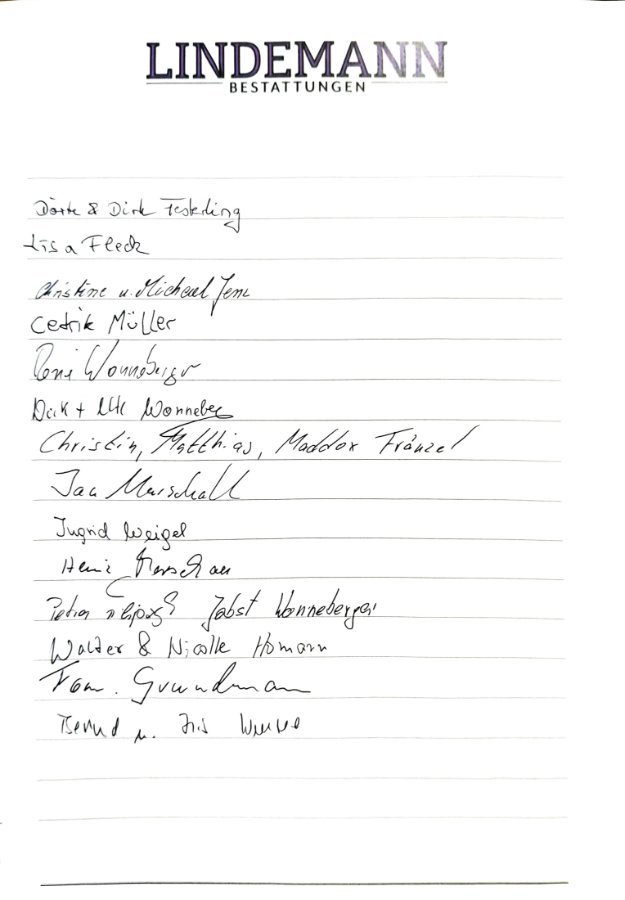 LINDEMANN
BESTATTUNGEN
Dörte & Dirk Festerling
Lisa Fleck
Christine u. Michael Jenc
Cedrik Müller
René Wonneberger
Dirk + Wonneberg
Christin, Matthias, Maddox Fränzel
Jan Marschall
Ingrid Weigel
Petra Jobst Wonneberger
Walter & Nicolle Homann
Fam. Grundmann
Bernd u. Iris